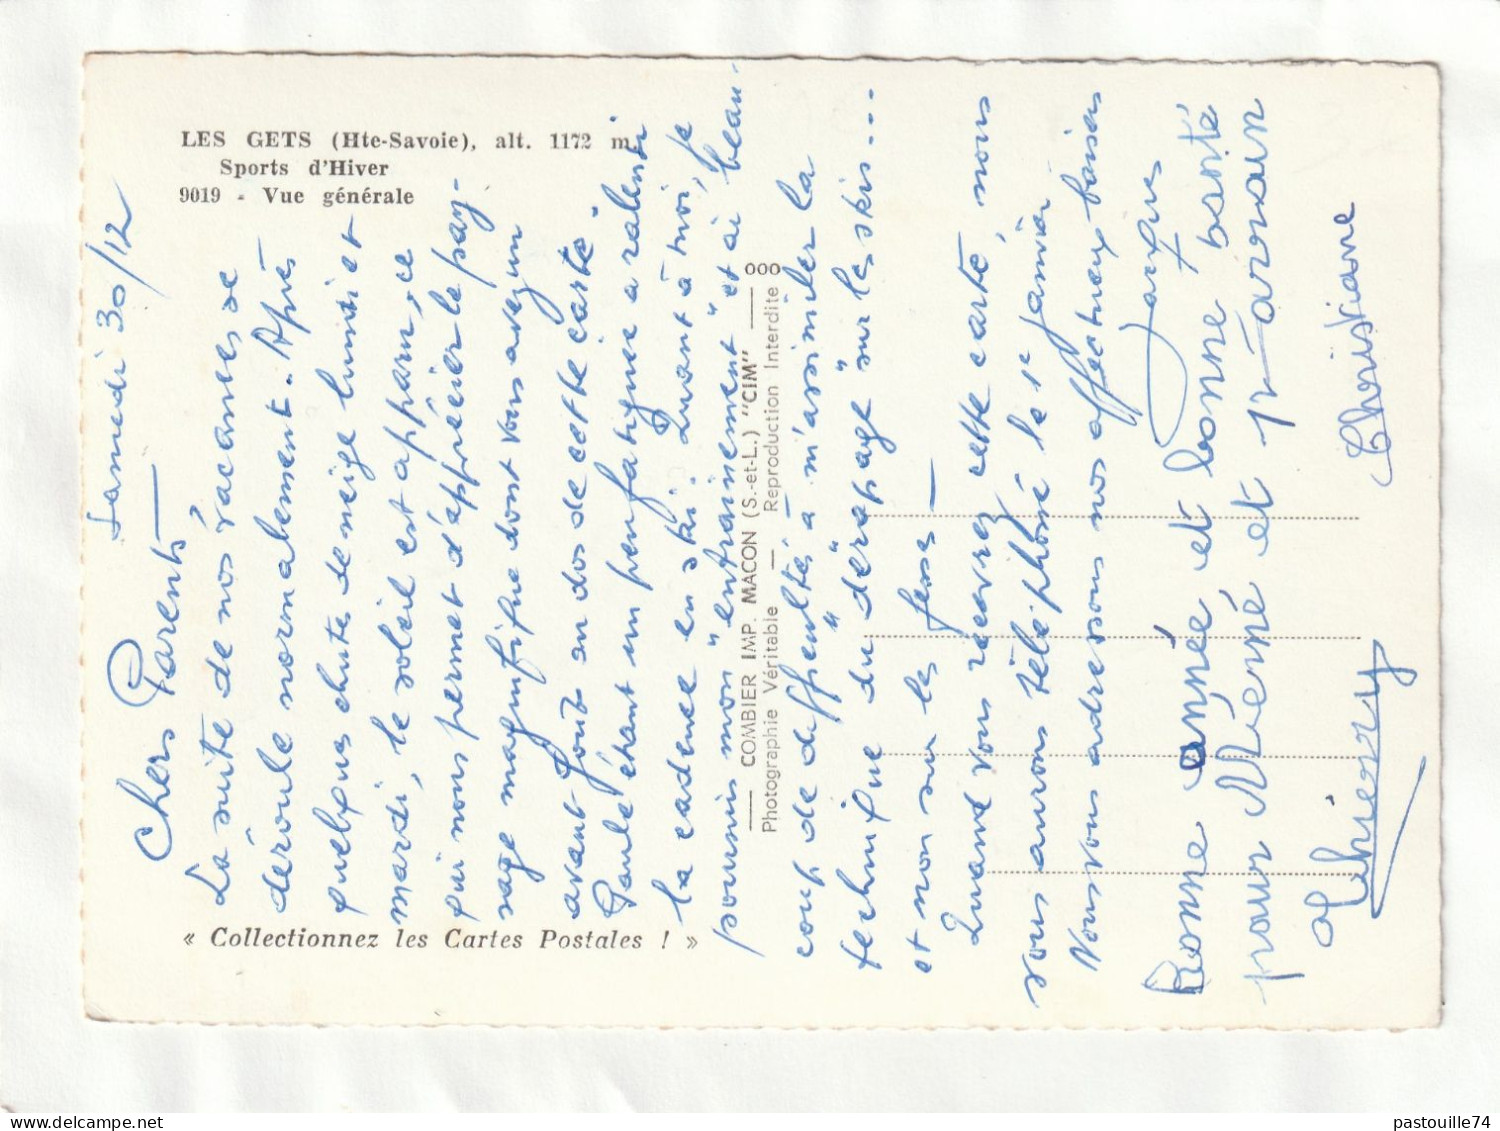 LES GETS (Hte-Savoie), alt. 1172 m.
Sports d'Hiver
9019 - Vue générale
« Collectionnez les Cartes Postales ! »
COMBIER IMP. MACON (S.-et-L.) "CIM"
Photographie Véritable — Reproduction Interdite
Samedi 30/12
Chers Parents
La suite de nos vacances se
déroule normalement. Après
quelques chutes de neige lundi et
mardi, le soleil est apparu, ce
qui nous permet d'apprécier le pay-
sage magnifique dont vous avez un
avant goût au dos de cette carte.
Paule étant un peu fatiguée a ralenti
la cadence en ski. Quant à moi, je
poursuis mon "entrainement" et ai beau-
coup de difficultés à m'assimiler la
technique du "dérapage" sur les skis...
et non sur les fesses —
Quand vous recevrez cette carte, nous
vous aurons téléphoné le 1er janvier
Nous vous adressons nos affectueux baisers
Jacques
Bonne année et bonne santé
pour Mémé et
Thierry
Christiane
pastouille74